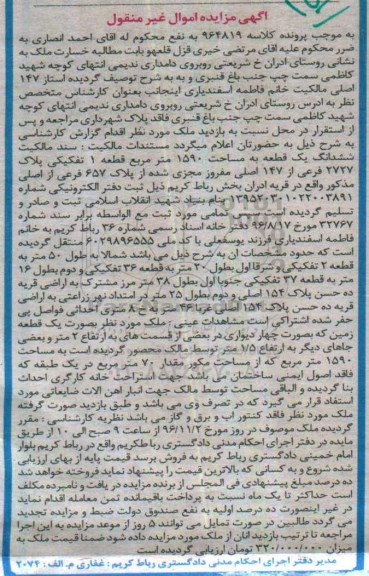 آگهی مزایده اموال غیر منقول
به موجب پرونده کلاسه ۹۶۴۸۱۹ به نفع محکوم له اقای احمد انصاری به
ضرر محکوم علیه اقای مرتضی خیری قزل قلعهو بابت مطالبه خسارت ملک به
نشانی روستای ادران خ شریعتی روبروی دامداری ندیمی انتهای کوچه شهید
کاظمی سمت چپ جنب باغ قنبری و به شرح توصیف گردیده استاز ۱۴۷
اصلی مالکیت خانم فاطمه اسفندیاری اینجانب بعنوان کارشناس متخصص
نظر به ادرس روستای ادران خ شریعتی روبروی دامداری ندیمی انتهای کوچه
شهید کاظمی سمت چپ جنب باغ قنبری فاقد پلاک شهرداری مراجعه و پس
از استقرار در محل نسبت به بازدید ملک مورد نظر اقدام گزارش کارشناسی
به شرح ذیل به حضورتان اعلام میگردد مستندات مالکیت : سند مالکیت
ششدانگ یک قطعه به مساحت ۱۵۹۰ متر مربع قطعه ۱ تفکیکی پلاک
۲۷۲۷ فرعی از ۱۴۷ اصلی مفروز مجزی شده از پلاک ۶۵۷ فرعی از اصلی
مذکور واقع در قریه ادران بخش رباط کریم ذیل ثبت دفتر الکترونیکی شماره
بنام بنیاد شهید انقلاب اسلامی ثبت و صادر و
تسلیم گردیده است تمامی مورد ثبت مع الواسطه برابر سند شماره
۳۲۷۶۷ مورخ ۹۶/۸/۱۷ دفتر خانه اسناد رسمی شماره ۳۶ رباط کریم به خانم
فاطمه اسفندیاری فرزند یوسفعلی با کد ملی ۶۰۲۹۸۹۶۵۵۵ منتقل گردیده
است که حدود و مشخصات ان به شرح ذیل می باشد شمالا بطول ۵۰ متر به
قطعه ۲ تفکیکی و شرقا اول بطول ۲۰ متر به قطعه ۳۶ تفکیکی و دوم بطول ۱۶
متر به قطعه ۳۷ تفکیکی جنوبا اول بطول ۳۸ متر مرز مشترک به اراضی قریه
ده حسن پلاک ۱۵۴ اصلی و دوم بطول ۲۵ متر در امتداد نهر زراعتی به اراضی
قریه ده حسن پلاک ۱۵۴ اصلی غربا ۴۶ متر به خ ۸ متری احداثی فواصل پی
حفر شده اشتراکی است مشاهدات عینی : ملک مورد نظر بصورت یک قطعه
زمین که بصورت چهار دیواری در بعضی از قسمت های به ارتفاع ۲ متر و بعضی
جاهای دیگر به ارتفاع ۱/۵ متر توسط مالک محصور گردیده است به مساحت
۱۵۹۰ متر مربع که از مساحت مکور مقدار ۷۰ متر مربع در یک طبقه که
فاقد اصول ایمنی ساختمان می باشد جهت استراحت خانه کارگری احداث
بنا گردیده و الباقی مساحت توسط مالک جهت انبار اهن الات ضایعاتی مورد
استفاد قرار می گیرد که در تصرف وی می باشد و طبق بازدید صورت گرفته
ملک مورد نظر فاقد کنتور اب و برق و گاز می باشد نظریه کارشناسی : مقرر
گردیده ملک موصوف در روز مورخ ۹۶/۱۱/۲ از ساعت ۹ صبح الی ۱۰ از طریق
مایده در دفتر اجرای احکام مدنی دادگستری رباطکریم واقع در رباط کریم بلوار
امام خمینی دادگستری رباط کریم به فروش برسد قیمت پایه از بهای ارزیابی
شده شروع و به کسانی که بالاترین قیمت را پیشنهاد نماید فروخته خواهد شد
ده درصد مبلغ پیشنهادی فی المجلس از برنده مزایده در یافت و نامبرده مکلف
است حداکثر تا یک ماه نسبت به پرداخت باقیمانده ثمن معامله اقدام نماید
در غیر اینصورت ده درصد اولیه به نفع صندوق دولت ضبط و مزایده تجدید
می گردد طالبین در صورت تمایل می توانند ۵ روز از موعد مزایده به این اجرا
مراجعه تا ترتیب بازدید انان از ملک مورد مزایده داده شود ضمنا قیمت ملک به
میزان ۳۳۰/۰۰۰/۰۰۰ تومان ارزیابی گردیده است
مدیر دفتر اجرای احکام مدنی دادگستری رباط کریم : غفاری م. الف : ۲۰۷۴